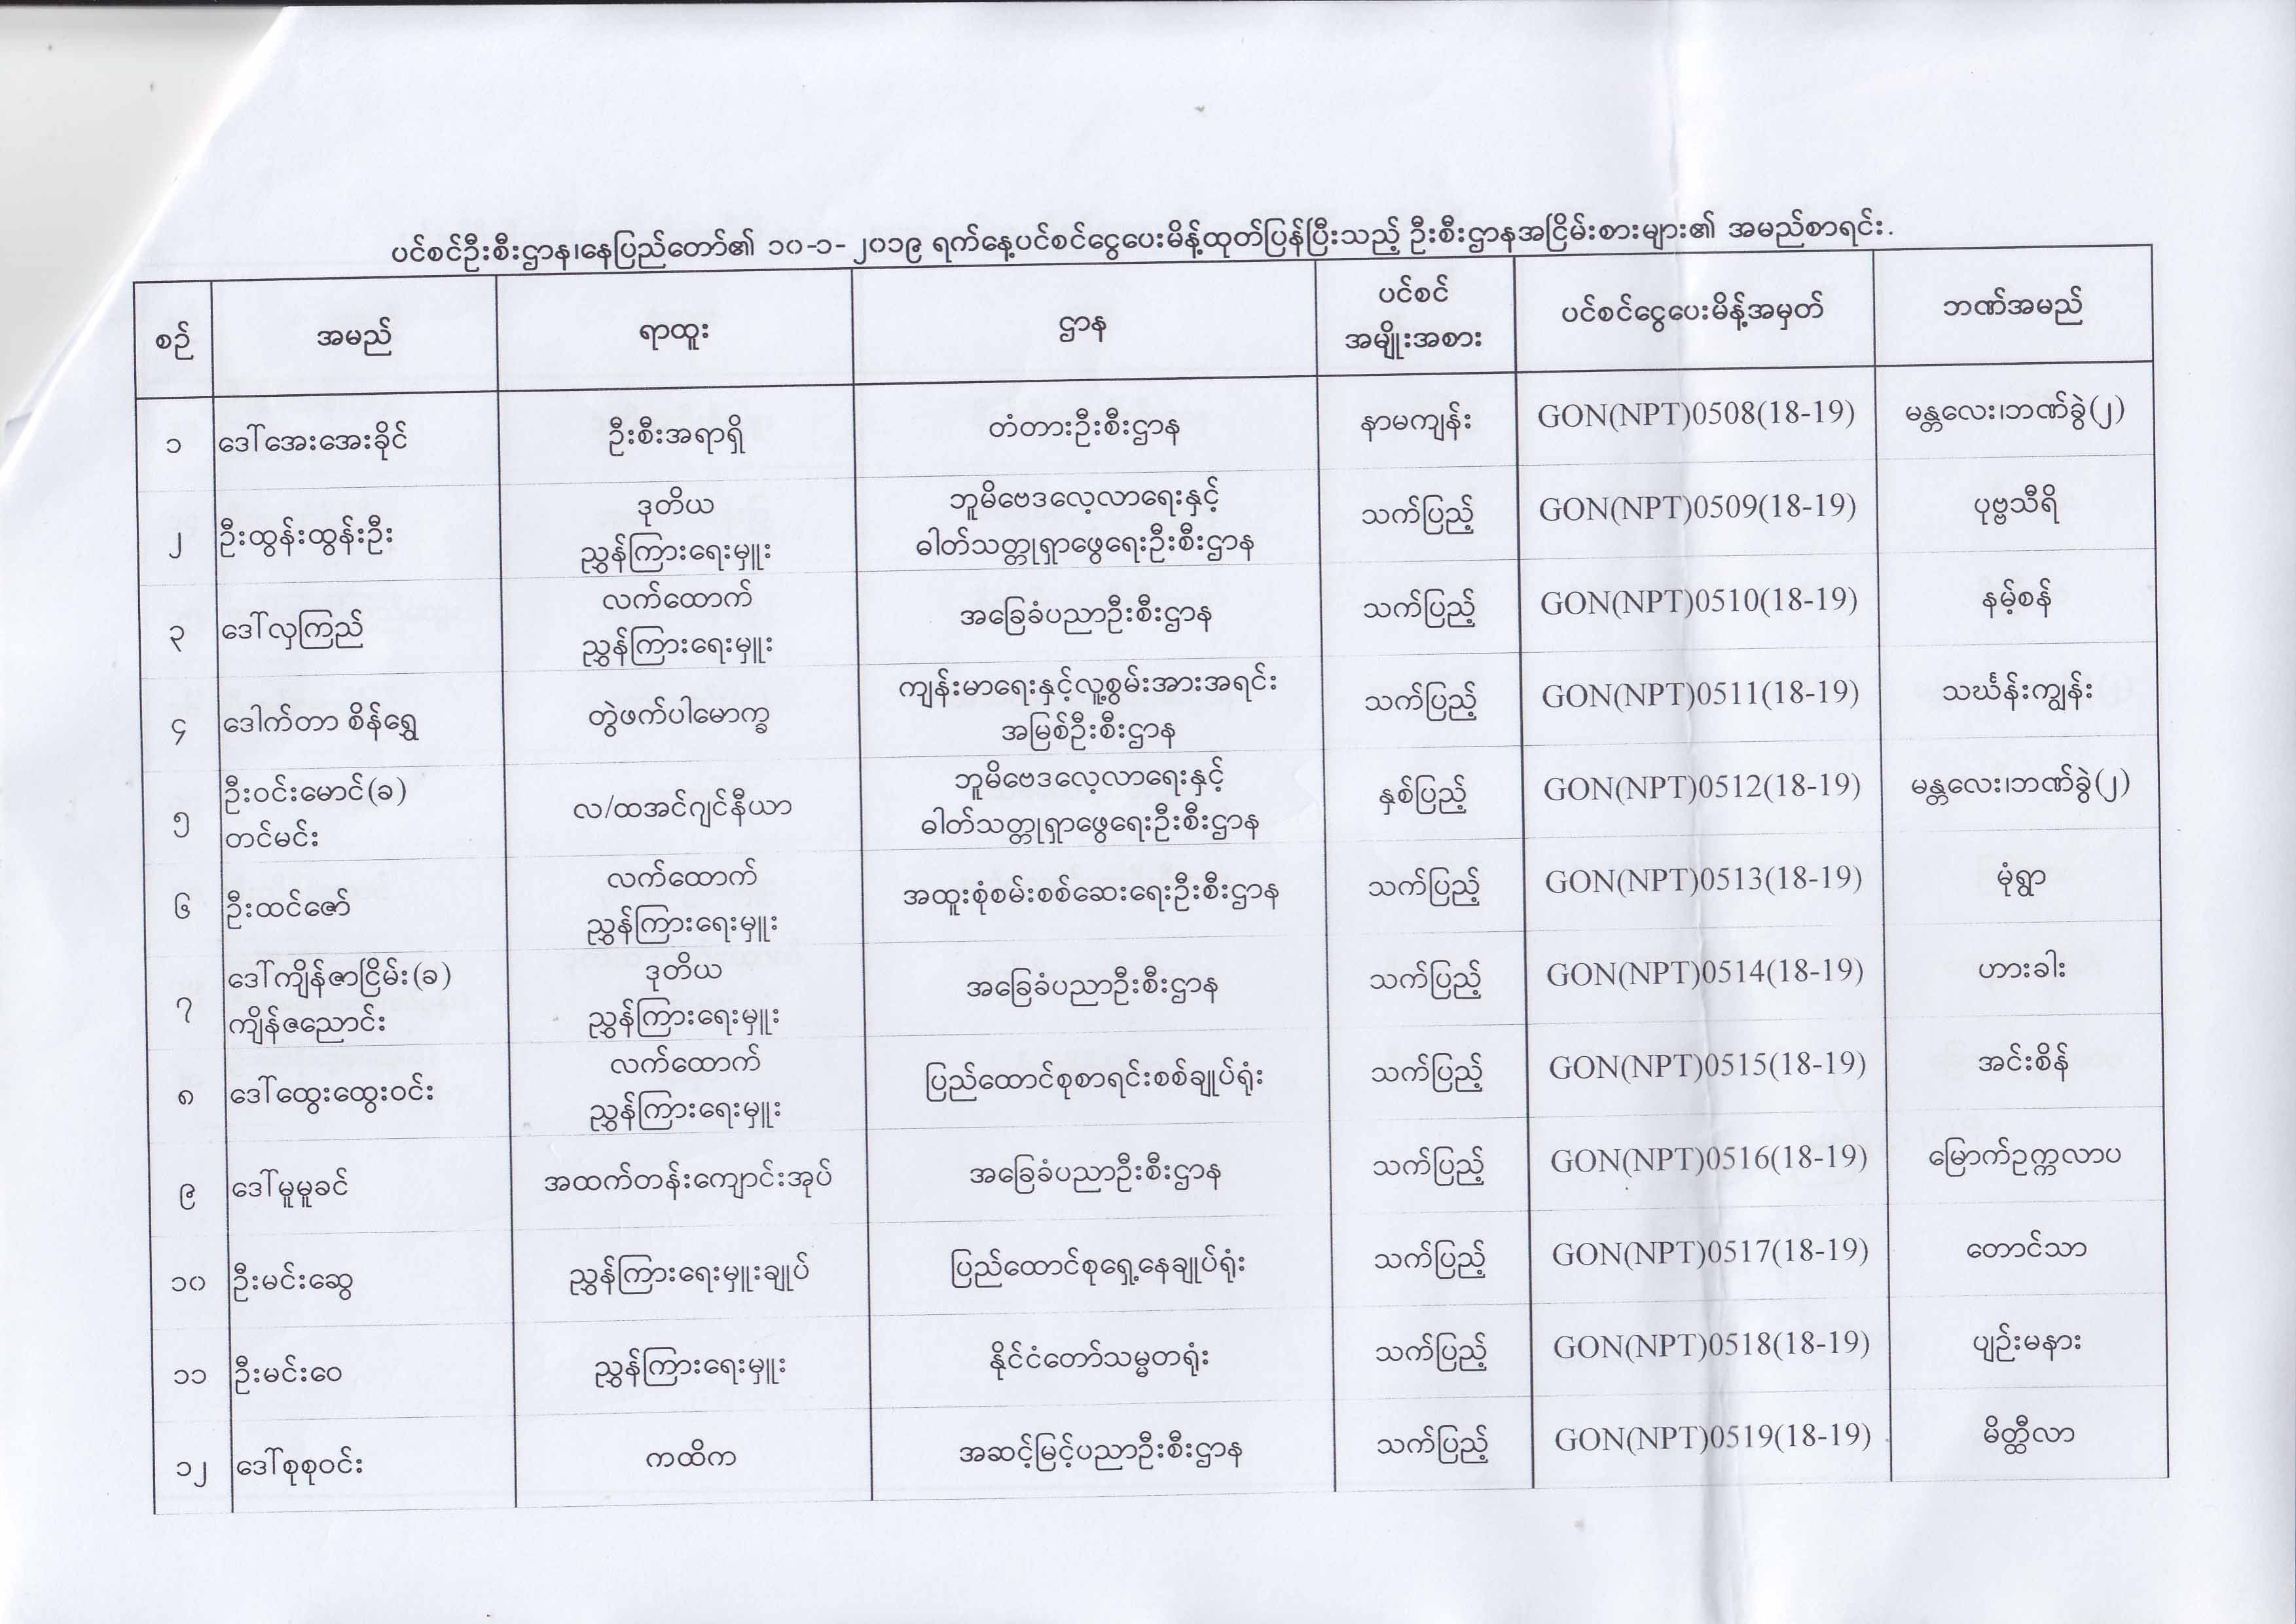 ပင်စင်ဦးစီးဌာန၊နေပြည်တော်၏ ၁၀-၁-၂၀၁၉ ရက်နေ့ပင်စင်ငွေပေးမိန့်ထုတ်ပြန်ပြီးသည့် ဦးစီးဌာနအငြိမ်းစားများ၏ အမည်စာရင်း.
စဉ် အမည် ရာထူး ဌာန ပင်စင် အမျိုးအစား ပင်စင်ငွေပေးမိန့်အမှတ် ဘဏ်အမည်
၁ ဒေါ်အေးအေးခိုင် ဦးစီးအရာရှိ တံတားဦးစီးဌာန နာမကျန်း GON(NPT)0508(18-19) မန္တလေး၊ဘဏ်ခွဲ(၂)
၂ ဦးထွန်းထွန်းဦး ဒုတိယ ညွှန်ကြားရေးမှူး ဘူမိဗေဒလေ့လာရေးနှင့် ဓါတ်သတ္တုရှာဖွေရေးဦးစီးဌာန သက်ပြည့် GON(NPT)0509(18-19) ပုဗ္ဗသီရိ
၃ ဒေါ်လှကြည် လက်ထောက် ညွှန်ကြားရေးမှူး အခြေခံပညာဦးစီးဌာန သက်ပြည့် GON(NPT)0510(18-19) နမ့်စန်
၄ ဒေါက်တာ စိန်ရွှေ တွဲဖက်ပါမောက္ခ ကျန်းမာရေးနှင့်လူ့စွမ်းအားအရင်း အမြစ်ဦးစီးဌာန သက်ပြည့် GON(NPT)0511(18-19) သင်္ဃန်းကျွန်း
၅ ဦးဝင်းမောင်(ခ) တင်မင်း လ/ထအင်ဂျင်နီယာ ဘူမိဗေဒလေ့လာရေးနှင့် ဓါတ်သတ္တုရှာဖွေရေးဦးစီးဌာန နှစ်ပြည့် GON(NPT)0512(18-19) မန္တလေး၊ဘဏ်ခွဲ(၂)
၆ ဦးထင်ဇော် လက်ထောက် ညွှန်ကြားရေးမှူး အထူးစုံစမ်းစစ်ဆေးရေးဦးစီးဌာန သက်ပြည့် GON(NPT)0513(18-19) မုံရွာ
၇ ဒေါ်ကျိန်ဇာငြိမ်း(ခ) ကျိန်ဇညောင်း ဒုတိယ ညွှန်ကြားရေးမှူး အခြေခံပညာဦးစီးဌာန သက်ပြည့် GON(NPT)0514(18-19) ဟားခါး
၈ ဒေါ်ထွေးထွေးဝင်း လက်ထောက် ညွှန်ကြားရေးမှူး ပြည်ထောင်စုစာရင်းစစ်ချုပ်ရုံး သက်ပြည့် GON(NPT)0515(18-19) အင်းစိန်
၉ ဒေါ်မူမူခင် အထက်တန်းကျောင်းအုပ် အခြေခံပညာဦးစီးဌာန သက်ပြည့် GON(NPT)0516(18-19) မြောက်ဥက္ကလာပ
၁၀ ဦးမင်းဆွေ ညွှန်ကြားရေးမှူးချုပ် ပြည်ထောင်စုရှေ့နေချုပ်ရုံး သက်ပြည့် GON(NPT)0517(18-19) တောင်သာ
၁၁ ဦးမင်းဝေ ညွှန်ကြားရေးမှူး နိုင်ငံတော်သမ္မတရုံး သက်ပြည့် GON(NPT)0518(18-19) ပျဉ်းမနား
၁၂ ဒေါ်စုစုဝင်း ကထိက အဆင့်မြင့်ပညာဦးစီးဌာန သက်ပြည့် GON(NPT)0519(18-19) မိတ္ထီလာ